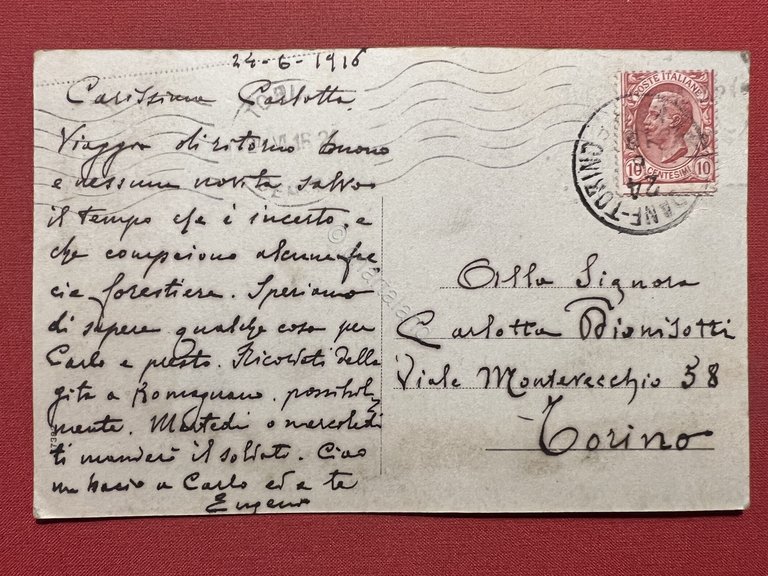 24-6-1916
Carissima Carlotta,
Viaggio di ritorno buono
e nessuna novità salvo
il tempo che è incerto, e
che compaiono alcune fac
cie forestiere. Speriamo
di sapere qualche cosa per
Carlo e presto. Ricordati della
gita a Romagnano, possibil
mente. Martedì o mercoledì
ti manderò il soldato. Ciao
un bacio a Carlo ed a te
Eugenio
POSTE ITALIANE
10 CENTESIMI 10
TORINO
24
Alla Signora
Carlotta Dionisotti
Viale Montevecchio 58
Torino